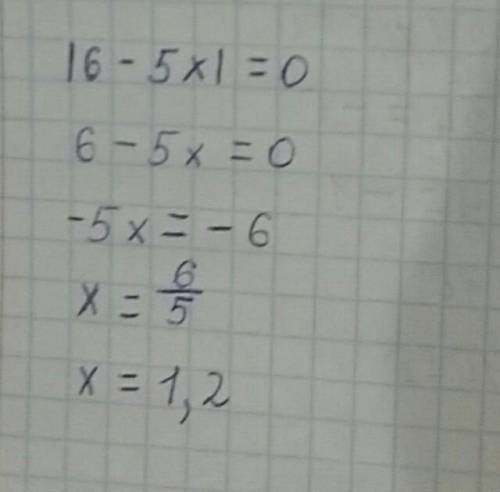 |6 - 5x| = 0
6 - 5x = 0
-5x = - 6
x = 6/5
x = 1,2